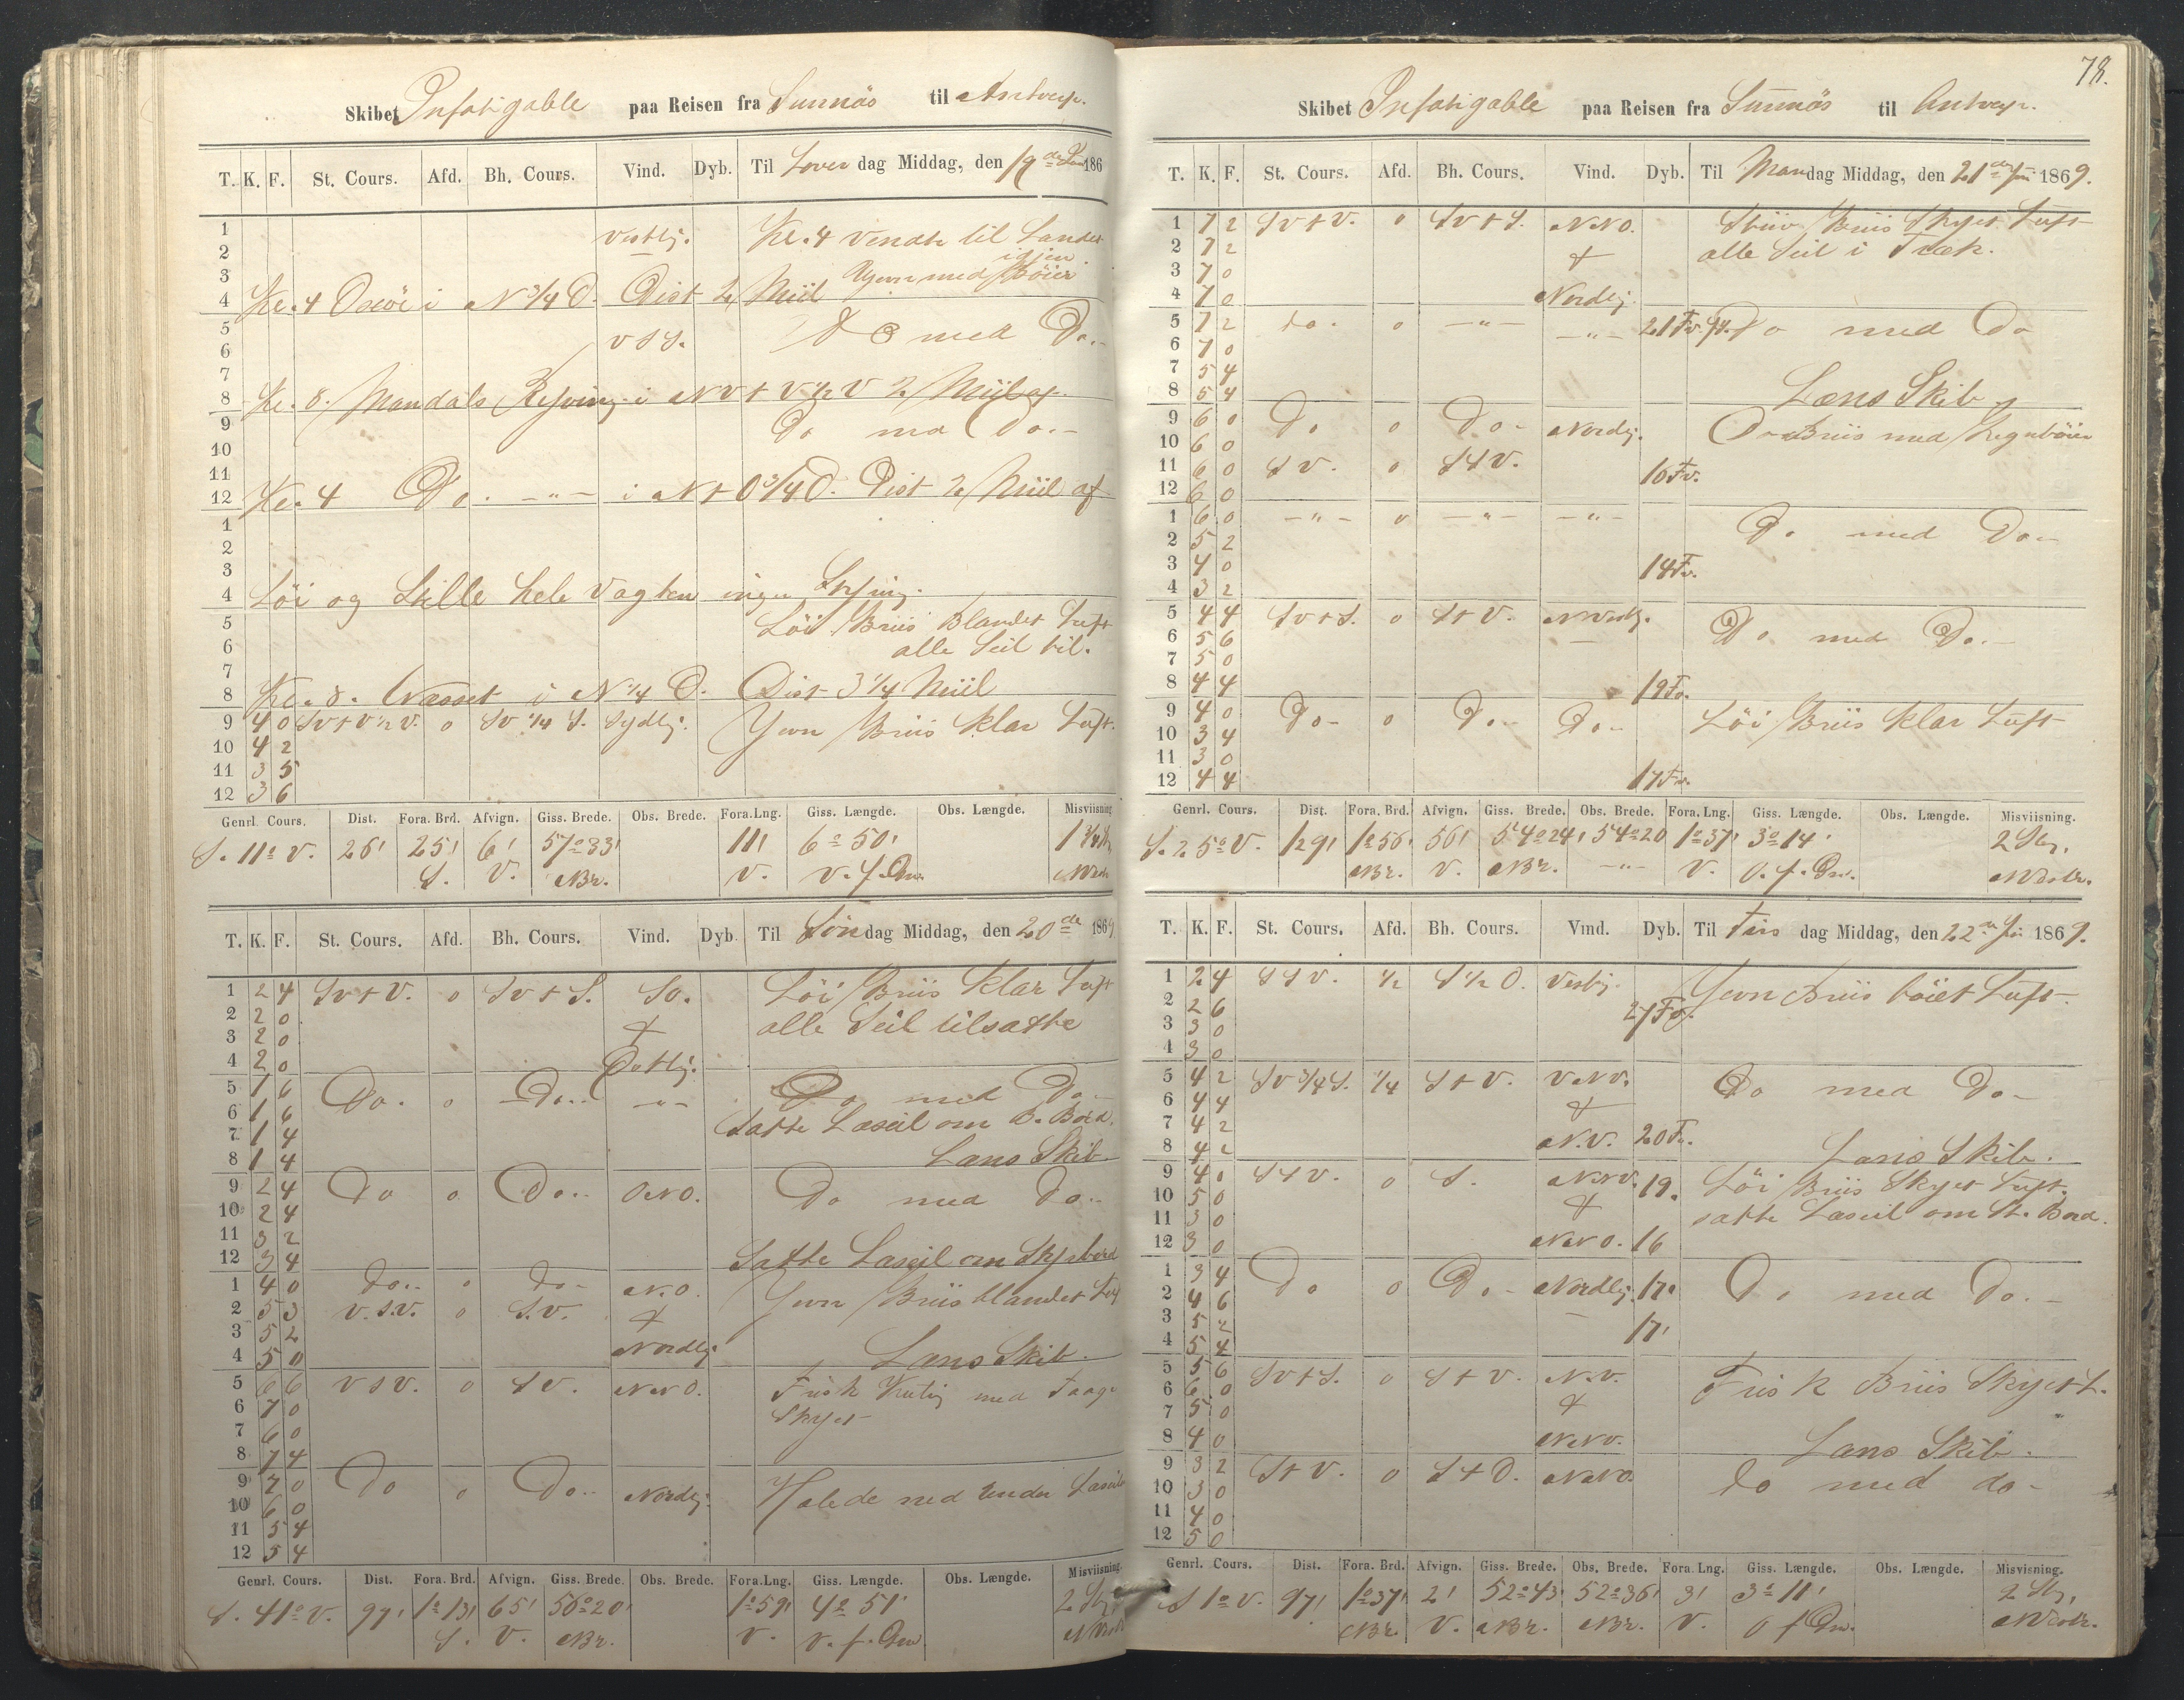 78.
Skibet Infatigable paa Reisen fra Sunnäs til Antverp.
T. K. F. St. Cours. Afd. Bh. Cours. Vind. Dyb. Til Löver dag Middag, den 19de Juni 186
1 vestlig. Kl. 4 vendte til Landet
2 igien
3 Jevn med Böier
4 Kl. 4 Oxöe i N 3/4 O. Dist 2 Miil
5 VSV. Do med Do.
6
7
8 Kl. 8. Mandals i NV + V 1/2 V 2 Miil af.
9 Do med Do.
10
11
12 Kl. 4 Do. -"- i N + O 3/4 O. Dist 2 Miil af
1
2
3
4 Löi og Stille hele Vagten ingen Styring.
5 Löi Briis Blandet Luft
6 alle Seil til.
7
8 Kl. 8. Næsset i N 1/4 O. Dist 3 1/4 Miil
9 4 0 SV+V 1/2 V. 0 SV 1/4 S. Sydlig. Jevn Briis Klar Luft.
10 4 2
11 3 5
12 3 6
Genrl. Cours. Dist. Fora. Brd. Afvign. Giss. Brede. Obs. Brede. Fora. Lng. Giss. Længde. Obs. Længde. Misviisning
S. 11° V. 26' 25' 6' 57°33' 11' 6°50' 1 3/4 Str
S. V. NBr. V. V. f. Grw. NVestr
T. K. F. St. Cours. Afd. Bh. Cours. Vind. Dyb. Til Söndag Middag, den 20de 1869
1 2 4 SV+V. 0 SV+S. SO. Löi Briis Klar Luft
2 2 0 + alle Seil tilsatte
3 2 0
4 2 0 Ostlig.
5 1 6 Do. 0 -Do.- -"- Do med Do.-
6 1 6 Satte Læseil om B. Bord.
7 1 4
8 1 4 Læns Skib
9 2 4 Do 0 Do.- ONO. Do med Do.-
10 2 4
11 3 2
12 3 4 Satte Læseil om Styrbord
1 4 0 Do.- 0 Do- N.O. Jevn Briis blandet Luft
2 5 3 V.S.V. 0 S.V. +
3 5 2
4 5 0 Nordlig Læns Skib.
5 6 6 VSV. 0 SV. NNO. Frisk Kuling med Taage
6 7 0 Skyet
7 6 0
8 7 4
9 7 0 Do 0 Do.- Nordlig. Halede ned under Læseil
10 6 0
11 5 4
12 5 4
Genrl. Cours. Dist. Fora. Brd. Afvign. Giss. Brede. Obs. Brede. Fora. Lng. Giss. Længde. Obs. Længde. Misviisning.
S. 41° V. 97' 1°13' 65' 56°20' 1°59' 4°51' 2 Str
S. V. NBr. V. V. f. Grw. NVestr
Skibet Infatigable paa Reisen fra Sunnäs til Antverp.
T. K. F. St. Cours. Afd. Bh. Cours. Vind. Dyb. Til Mandag Middag, den 21de Juni 1869.
1 7 2 SV+V. 0 SV+S. NNO. Stiiv Briis Skyet Luft
2 7 2 + alle Seil i Træk.
3 7 0
4 7 0 Nordlig.
5 7 2 do. 0 -"- -"- 21 Fv. Do med Do
6 7 0
7 5 4
8 5 4 Læns Skib
9 6 0 Do 0 Do- Nordlig. Briis med Regnböier
10 6 0
11 6 0 SV. 0 S+V. 16 Fv.
12 6 0
1 6 0 -"- 0 -"- -"- Do med Do.-
2 5 2
3 4 0 14 Fv.
4 3 2
5 4 4 SV+S. 0 S+V. NVestlg. Do med Do.-
6 5 6
7 5 0
8 4 4 19 Fv.
9 4 0 Do- 0 Do.- Do.- Löi Briis Klar Luft
10 3 4
11 3 0
12 4 4 17 Fv.
Genrl. Cours. Dist. Fora. Brd. Afvign. Giss. Brede. Obs. Brede. Fora. Lng. Giss. Længde. Obs. Længde. Misviisning.
S. 25° V. 129' 1°56' 56' 54°24' 54°20 1°37' 3°14' 2 Str.
NBr. V. NBr. -"- V. O. f. Grw. NVestr.
T. K. F. St. Cours. Afd. Bh. Cours. Vind. Dyb. Til Tirsdag Middag, den 22de Juni 1869.
1 2 4 SSV. 1/2 S 1/2 O. Vestlig. Jevn Briis böiet Luft.
2 2 6 27 Fv.
3 3 0
4 3 0
5 4 2 SV 3/4 S. 1/4 S+V. VNV. Do med Do-
6 4 4 +
7 4 2
8 4 2 N.V. 20 Fv. Læns Skib.
9 4 0 S+V. 0 S. NNV. 19. Löi Briis Skyet Luft.
10 5 0 + satte Læseil om St. Bord.
11 3 0
12 3 0 NNO. 16
1 3 4 Do 0 Do- Nordlig. 17. Do med Do.-
2 4 6
3 5 2 17'
4 5 4
5 5 6 SV+S. 0 S+V. N.V. Frisk Briis Skyet L.
6 6 0 +
7 5 0
8 4 0 NNV. Læns Skib.
9 3 2 S+V. 0 S+O. NNO. do med do-
10 3 0
11 4 0
12 5 0
Genrl. Cours. Dist. Fora. Brd. Afvign. Giss. Brede. Obs. Brede. Fora. Lng. Giss. Længde. Obs. Længde. Misvisning.
S 1° V. 97' 1°37' 2' 52°43' 52°36' 3' 3°11' 2 Str,
NBr. V. NBr. NBr. V. O f Grw. NVestr.